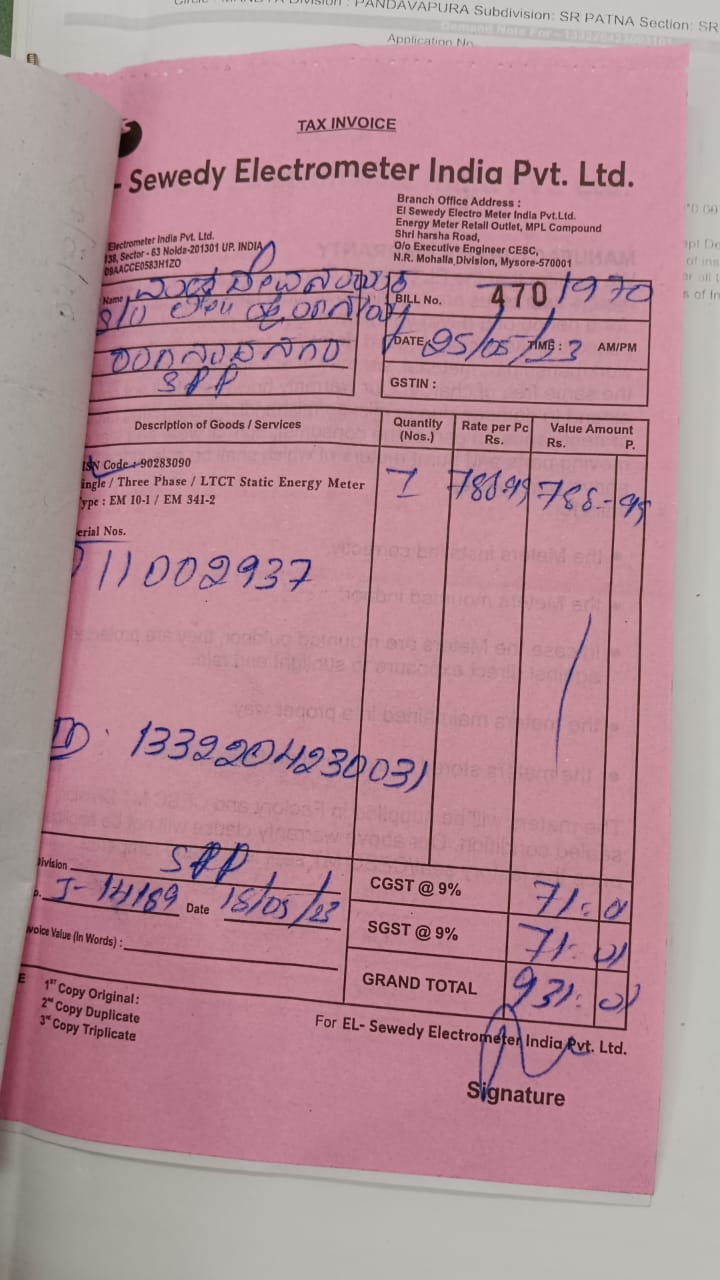 PANDAVAPURA Subdivision: SR PATNA Section: SR
Demand Note For - 
Application No.
TAX INVOICE
- Sewedy Electrometer India Pvt. Ltd.
Electrometer India Pvt. Ltd.
138, Sector - 63 Noida-201301 UP. INDIA
09AACCE0583H1ZO
Branch Office Address :
El Sewedy Electro Meter India Pvt.Ltd.
Energy Meter Retail Outlet, MPL Compound
Shri harsha Road,
O/o Executive Engineer CESC,
N.R. Mohalla,Division, Mysore-570001
Name
S/o
SPP
BILL No. 470/1970
DATE 25/05/23 TIME : AM/PM
GSTIN :
Description of Goods / Services Quantity (Nos.) Rate per Pc Rs. Value Amount Rs. P.
SN Code : 90283090
ingle / Three Phase / LTCT Static Energy Meter 1 788-99 788-99
ype : EM 10-1 / EM 341-2
erial Nos.
11002937
ID: 1332204230031
ivision SPP
J-14189 Date 18/05/23
voice Value (In Words) :
CGST @ 9% 71: 01
SGST @ 9% 71: 01
GRAND TOTAL 931: 01
E 1st Copy Original :
2nd Copy Duplicate
3rd Copy Triplicate
For EL- Sewedy Electrometer India Pvt. Ltd.
Signature